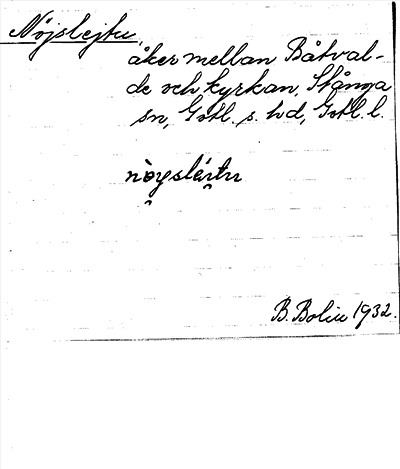 Nöjslejtu,
åker mellan Båtval-
de och kyrkan, Stånga
sn, Gotl. s. hd, Gotl. l.
B. Bolin 1932.